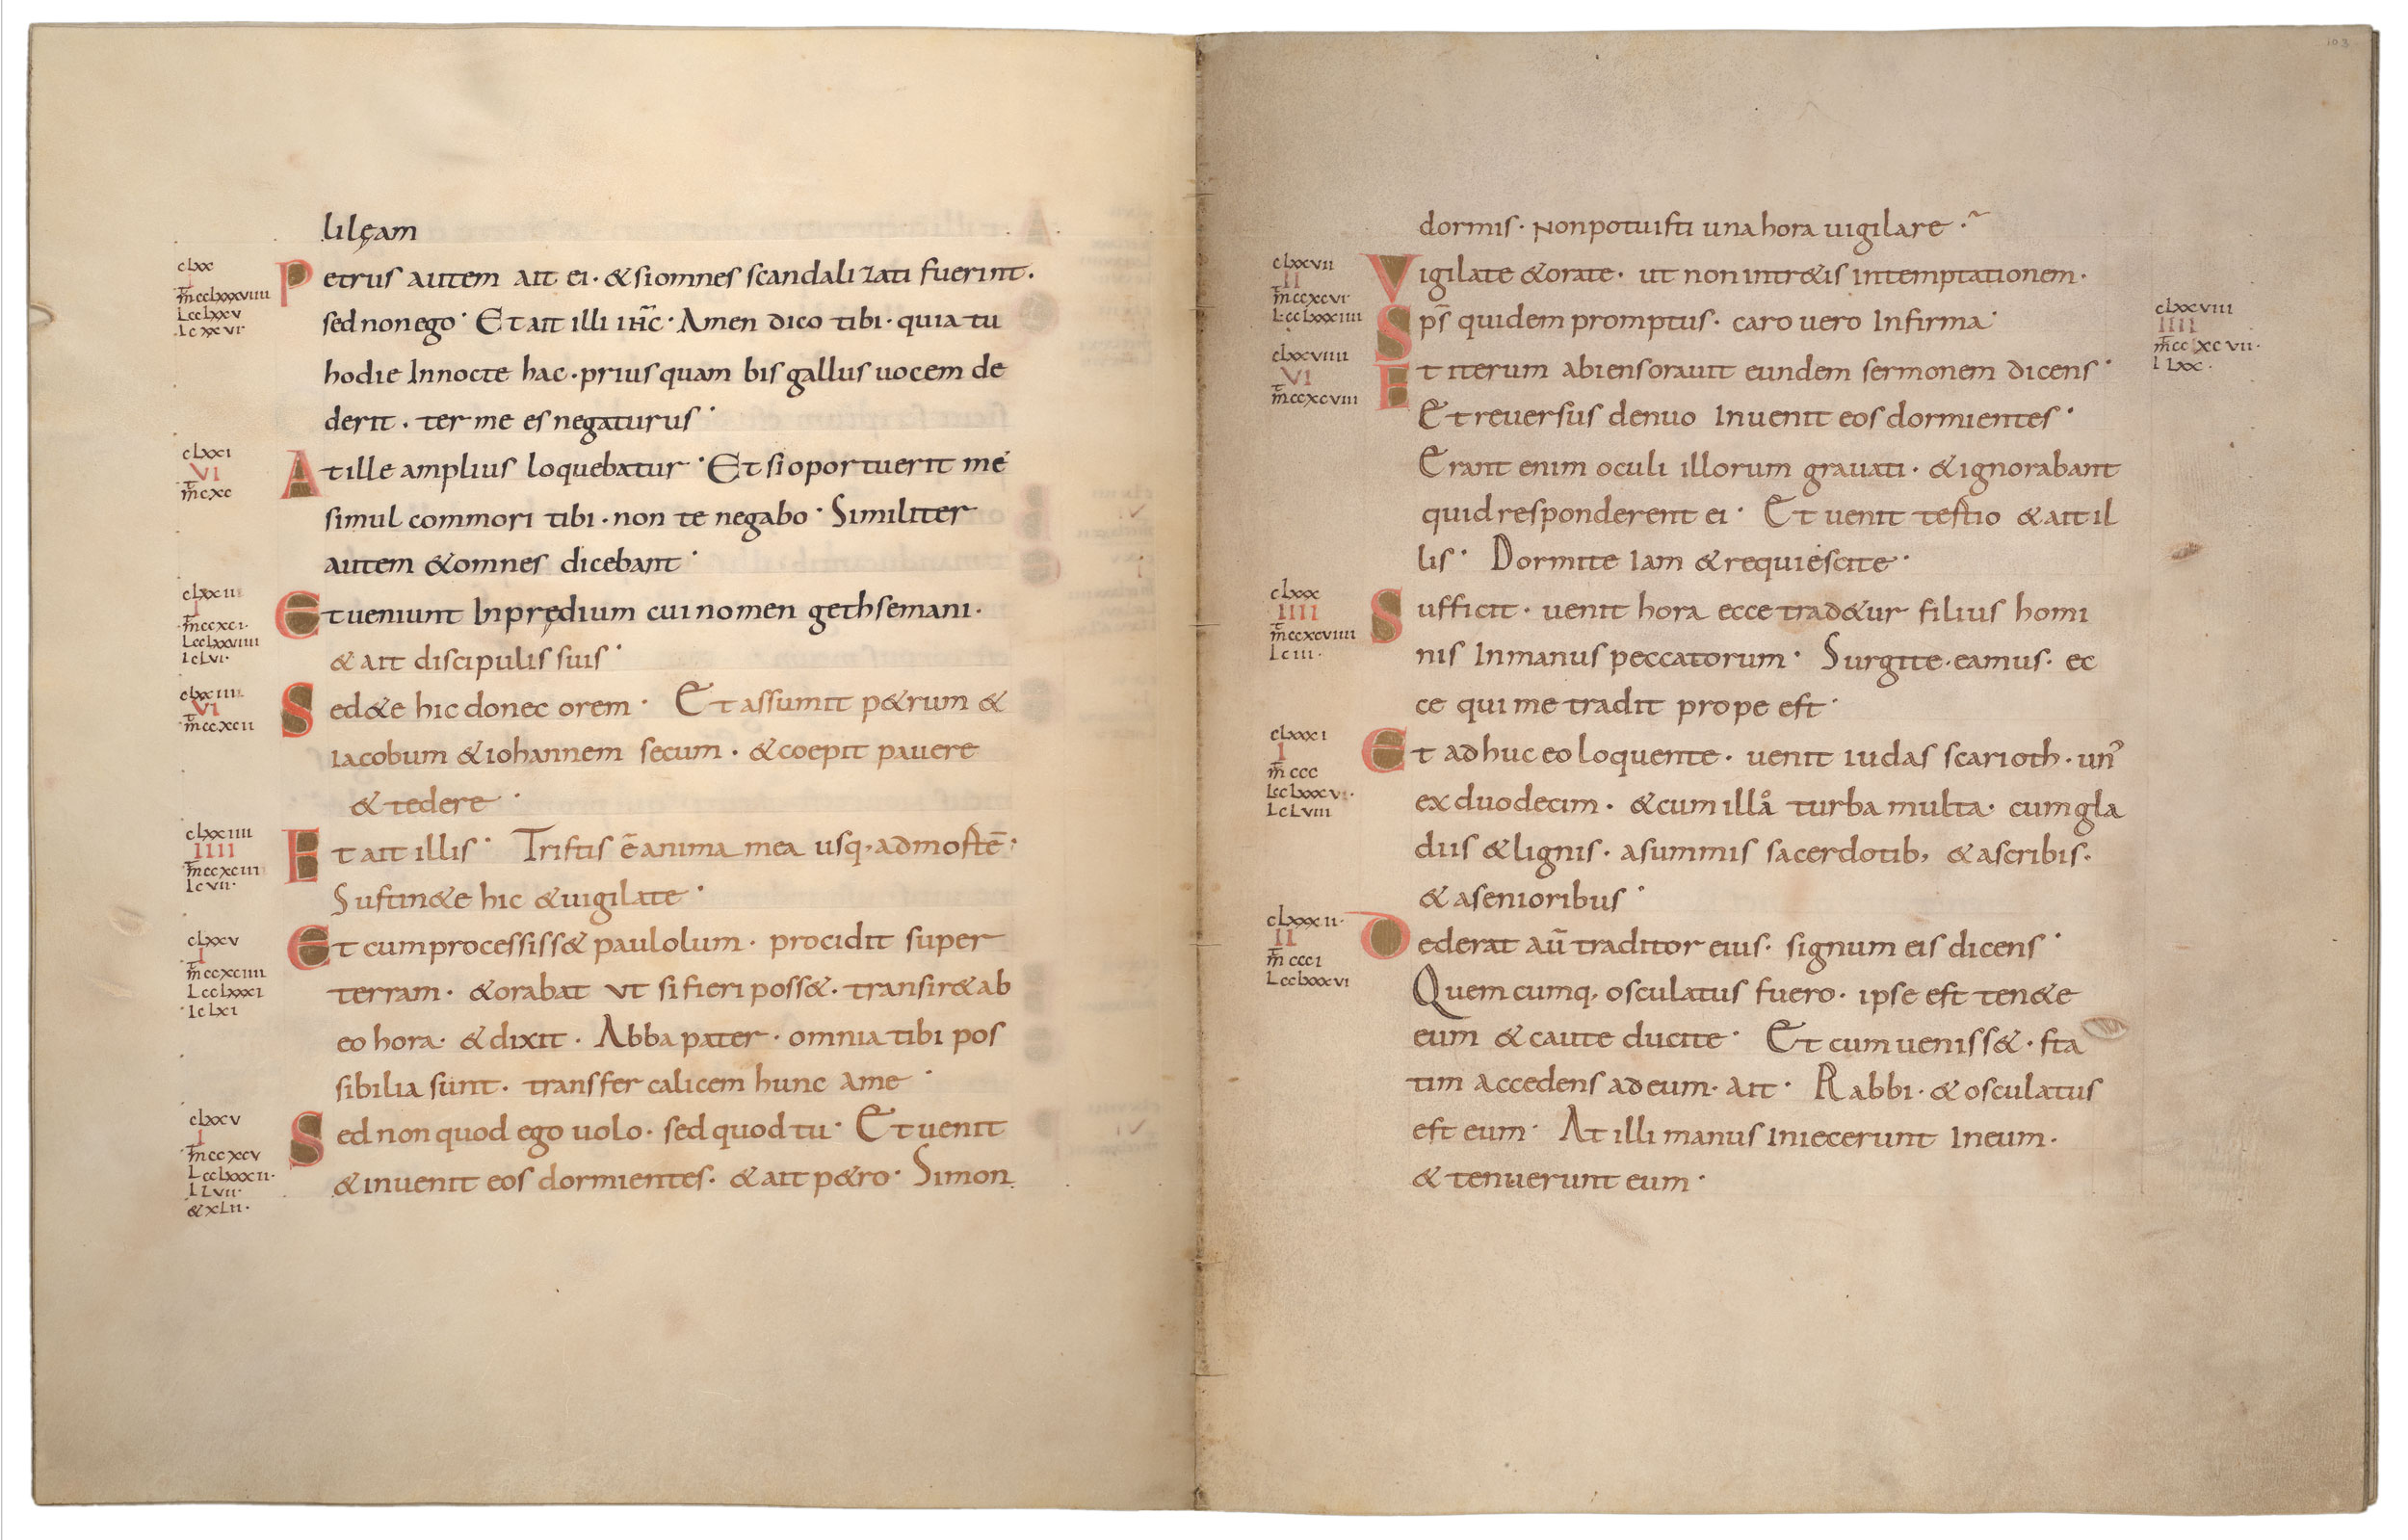 lilęam
clxx
I
m̄cclxxxviiii
Lcclxxv
Icxxvi·
Petrus autem ait ei· &siomnes scandalizati fuerint·
sednonego· Etait illi ihc̄· Amen dico tibi· quia tu
hodie Innocte hac· priusquam bis gallus uocem de
derit· ter me es negaturus·
clxxi
VI
m̄cxc
Atille amplius loquebatur· Et si oportuerit me
simul commori tibi· non te negabo· Similiter
autem &omnes dicebant·
clxxii
I
m̄ccxci·
Lcclxxviiii
IcLvi·
Etueniunt Inprędium cui nomen gethsemani·
& ait discipulis suis·
clxxiii
VI
m̄ccxcii
Sed&e hic donec orem· Et assumit p&rum &
iacobum &iohannem secum· &coepit pauere
& tedere·
clxxiiii
IIII
m̄ccxciii
Icvii·
Et ait illis· Tristis ē anima mea usq· ad mortē·
Sustin&e hic &uigilate·
clxxv
I
m̄ccxciiii
Lcclxxxi
Iclxi
Et cum processiss& paulolum· procidit super
terram· &orabat ut si fieri poss&· transir& ab
eo hora· & dixit· Abba pater· omnia tibi pos
sibilia sunt· transfer calicem hunc ame·
clxxv
I
m̄ccxcv
Lcclxxxii·
ILvii·
&xLii·
Sed non quod ego uolo· sed quod tu· Et uenit
&inuenit eos dormientes· & ait p&ro· Simon
103
dormis· Non potuisti una hora uigilare·
clxxvii
II
m̄ccxcvi
Lcclxxxiiii
Vigilate &orate· ut non intr&is intemptationem·
clxxviii
IIII
m̄ccxcvii·
I Lxx·
Sps̄ quidem promptus· caro uero Infirma·
clxxviiii
VI
m̄ccxcviii
Et iterum abiens orauit eundem sermonem dicens·
Et reuersus denuo Inuenit eos dormientes·
Erant enim oculi illorum grauati· & ignorabant
quid responderent ei· Et uenit tertio & ait il
lis· Dormite Iam & requiescite·
clxxx
IIII
m̄ccxcviiii
Iciii·
Sufficit· uenit hora ecce trad&ur filius homi
nis Inmanus peccatorum· Surgite· eamus· ec
ce qui me tradit prope est·
clxxxi
I
m̄ccc
Lcclxxxvi·
IcLviii
Et adhuc eo loquente· uenit iudas scarioth· un᾿
ex duodecim· &cum illå turba multa· cum gla
diis &lignis· asummis sacerdotib, & ascribis·
& asenioribus·
clxxxii·
II
m̄ccci
Lcclxxxvi
Dederat aū traditor eius· signum eis dicens·
Quemcumq, osculatus fuero· ipse est ten&e
eum & caute ducite· Et cum ueniss&· sta
tim accedens ad eum· ait· Rabbi· & osculatus
est eum· At illi manus iniecerunt Ineum·
& tenuerunt eum·